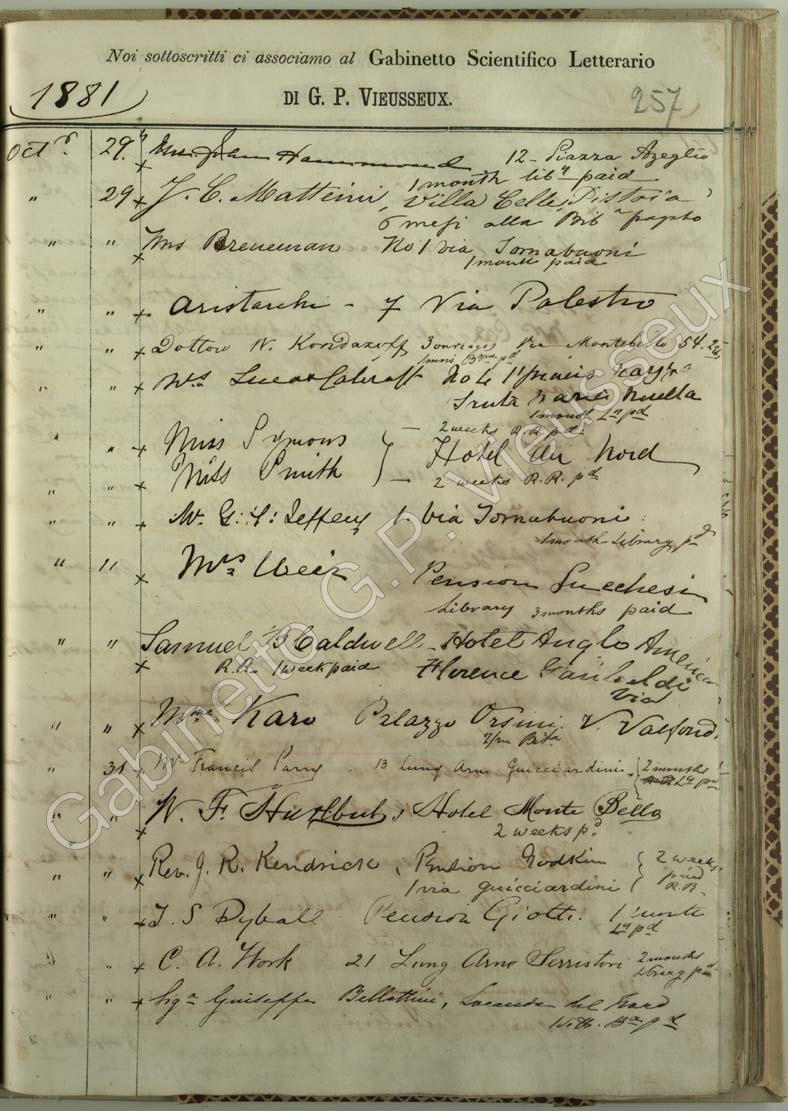 Noi sottoscritti ci associamo al Gabinetto Scientifico Letterario
DI G. P. VIEUSSEUX.
1881
257
Oct 29 Hammond 12 - Piazza Azeglio
1 month paid
" 29 J. C. Matteini, Villa Celle, Pistoia
6 mesi alla
" " Mrs Breneman No 1 via Tornabuoni
1 month paid
" " Aristarchi - 7 Via Palestro
" " Dottore N. Via Montebello 54.
" " Mrs No 4
1 month pd
" " Miss Symons 2 weeks R.R. pd
Miss Smith Hotel du Nord
2 weeks R.R. pd
" " Mr. G. Jeffery 1. Via Tornabuoni
1 month Library pd
" 11 Mrs Weir Pension Lucchesi
Library 3 months paid
" " Samuel B Caldwell - Hotel Anglo Américain
R.R. 1 week paid Florence Garibaldi
Via
" " Mme Karo Palazzo Orsini V. Valfond.
" 31 Mr Francis Parry. 13 Lung Arno Guicciardini 2 months
" " W. F. Hurlbut, Hotel Monte Bello
2 weeks pd
" " Rev. J. R. Kendrick, Pension Godkin 2 weeks
1 via Guicciardini paid
R.R.
" " T. S Dyball Pension Giotti. 1 month
pd
" " C. A. Work 21 Lung Arno Serristori 2 months
pd
" " Giuseppe Bellottini, Locanda del
pd
Gabinetto G.P. Vieusseux